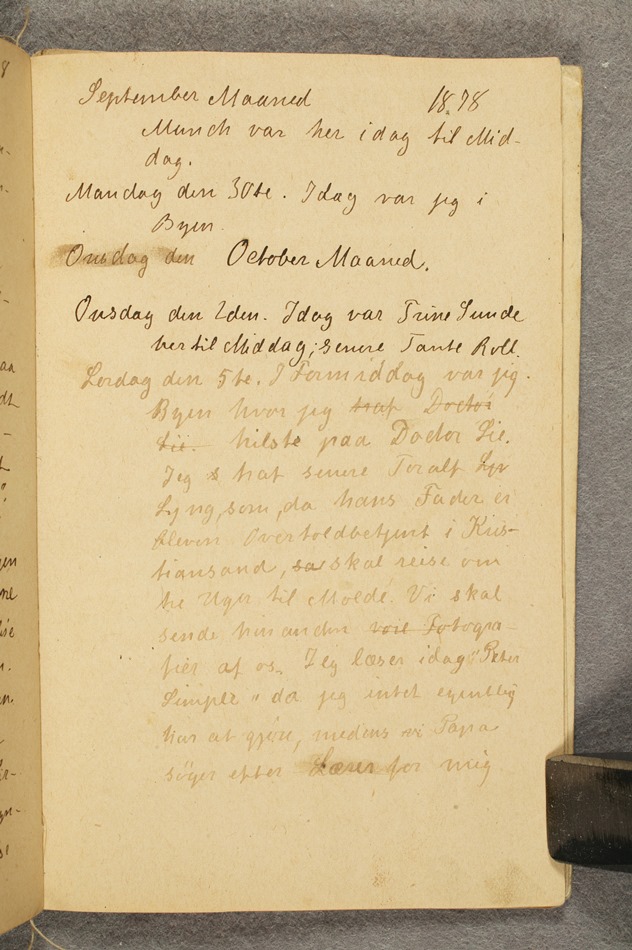 September Maaned 1878
Munch var her idag til Mid-
dag.
Mandag den 30te. Idag var jeg i
Byen.
Onsdag den October Maaned.
Onsdag den 2den. Idag var Trine Sunde
her til Middag; senere Tante Roll.
Lørdag den 5te. I Formiddag var jeg
Byen hvor jeg traf Doctor
Lie. hilste paa Doctor Lie.
Jeg traf senere Toralf
Lyng, som, da hans Fader er
bleven Overtoldbetjent i Kris-
tiansand, saa skal reise om
tre Uger til Molde. Vi skal
sende hinanden vore Fotogra-
fier af os. Jeg læser idag "Peter
Simple" da jeg intet egentlig
har at gjøre, medens vi Papa
søger efter Lærer for mig